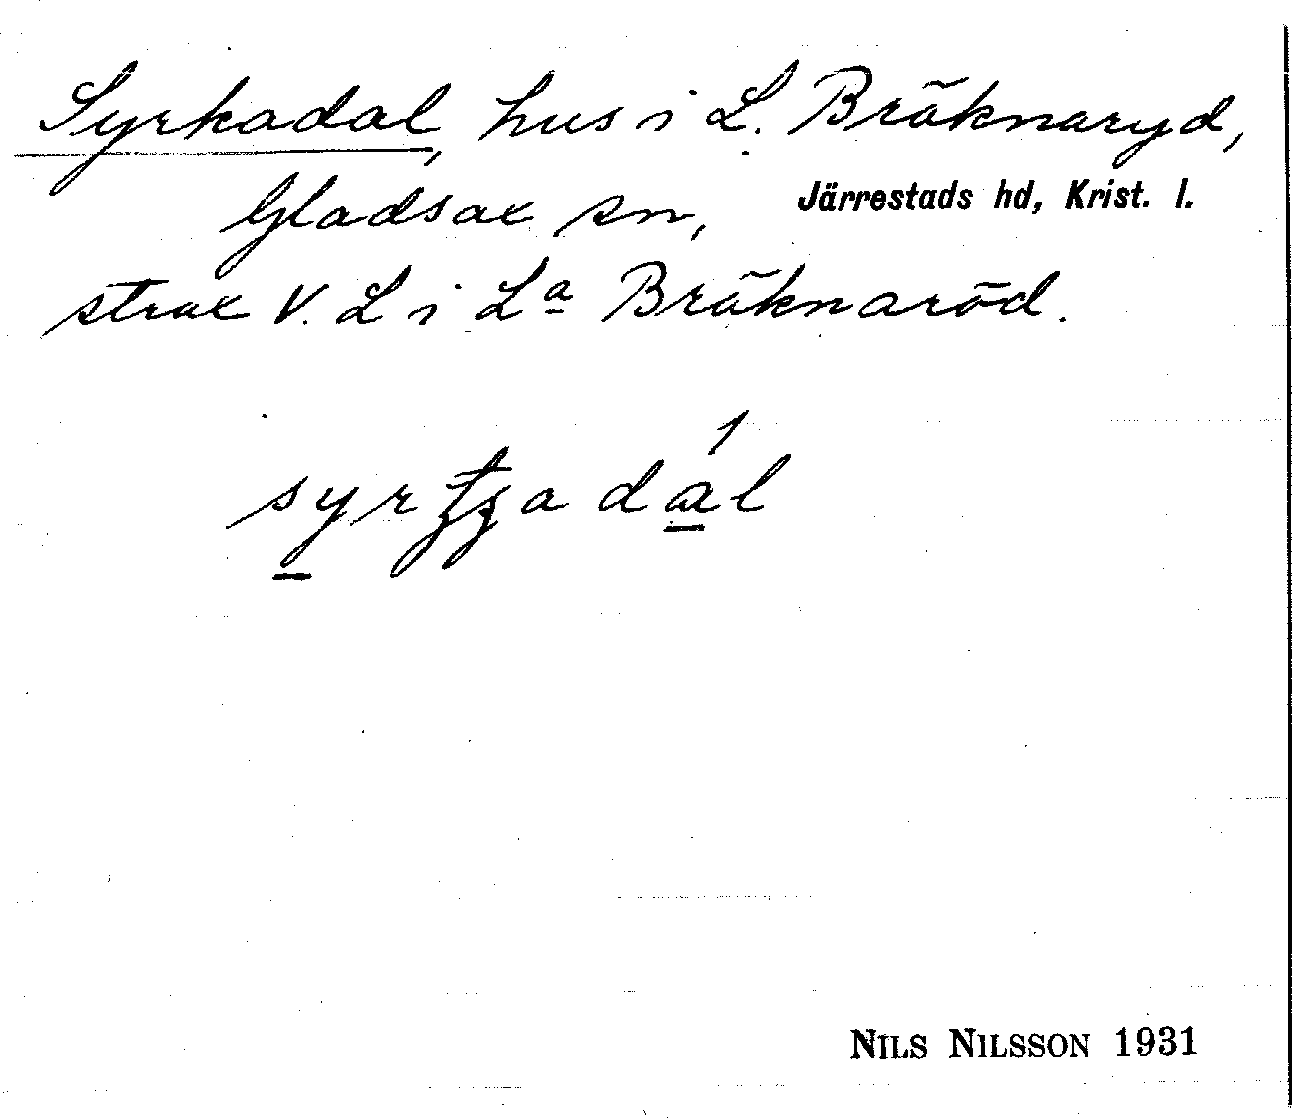 Syrkadal, hus i L. Bräknaryd,
Gladsax sn, Järrestads hd, Krist. l.
strax V. L i La Bräknaröd.
NILS NILSSON 1931